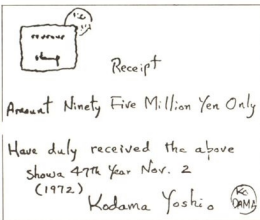 revenue
stamp
Receipt
Amount Ninety Five Million Yen Only
Have duly received the above
Showa 47th Year Nov. 2
(1972)
Kodama Yoshio
KO
DAMA